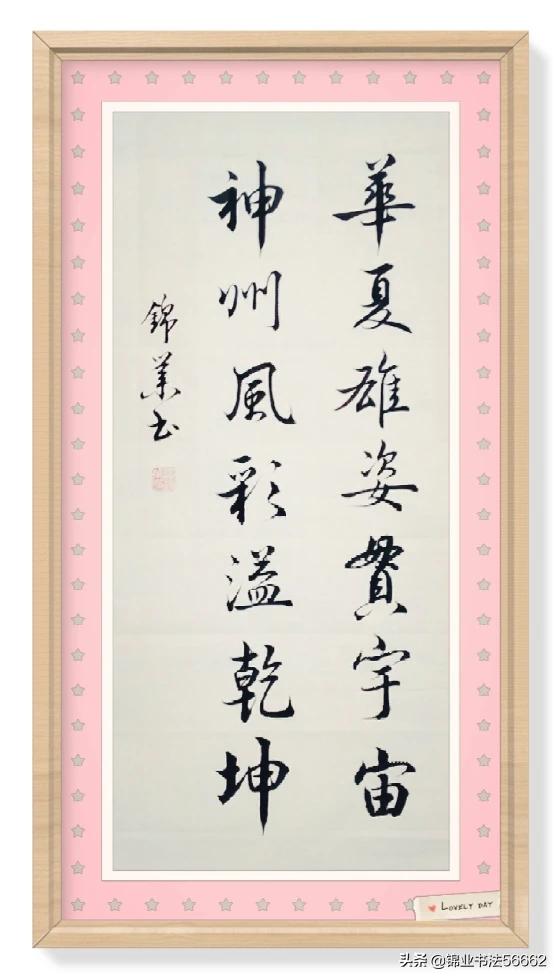 華夏雄姿貫宇宙
神州風彩溢乾坤
錦業书
LOVELY DAY
头条 @锦业书法56662